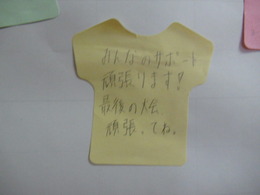 みんなのサポート
頑張ります?
最後の大会
頑張ってね。